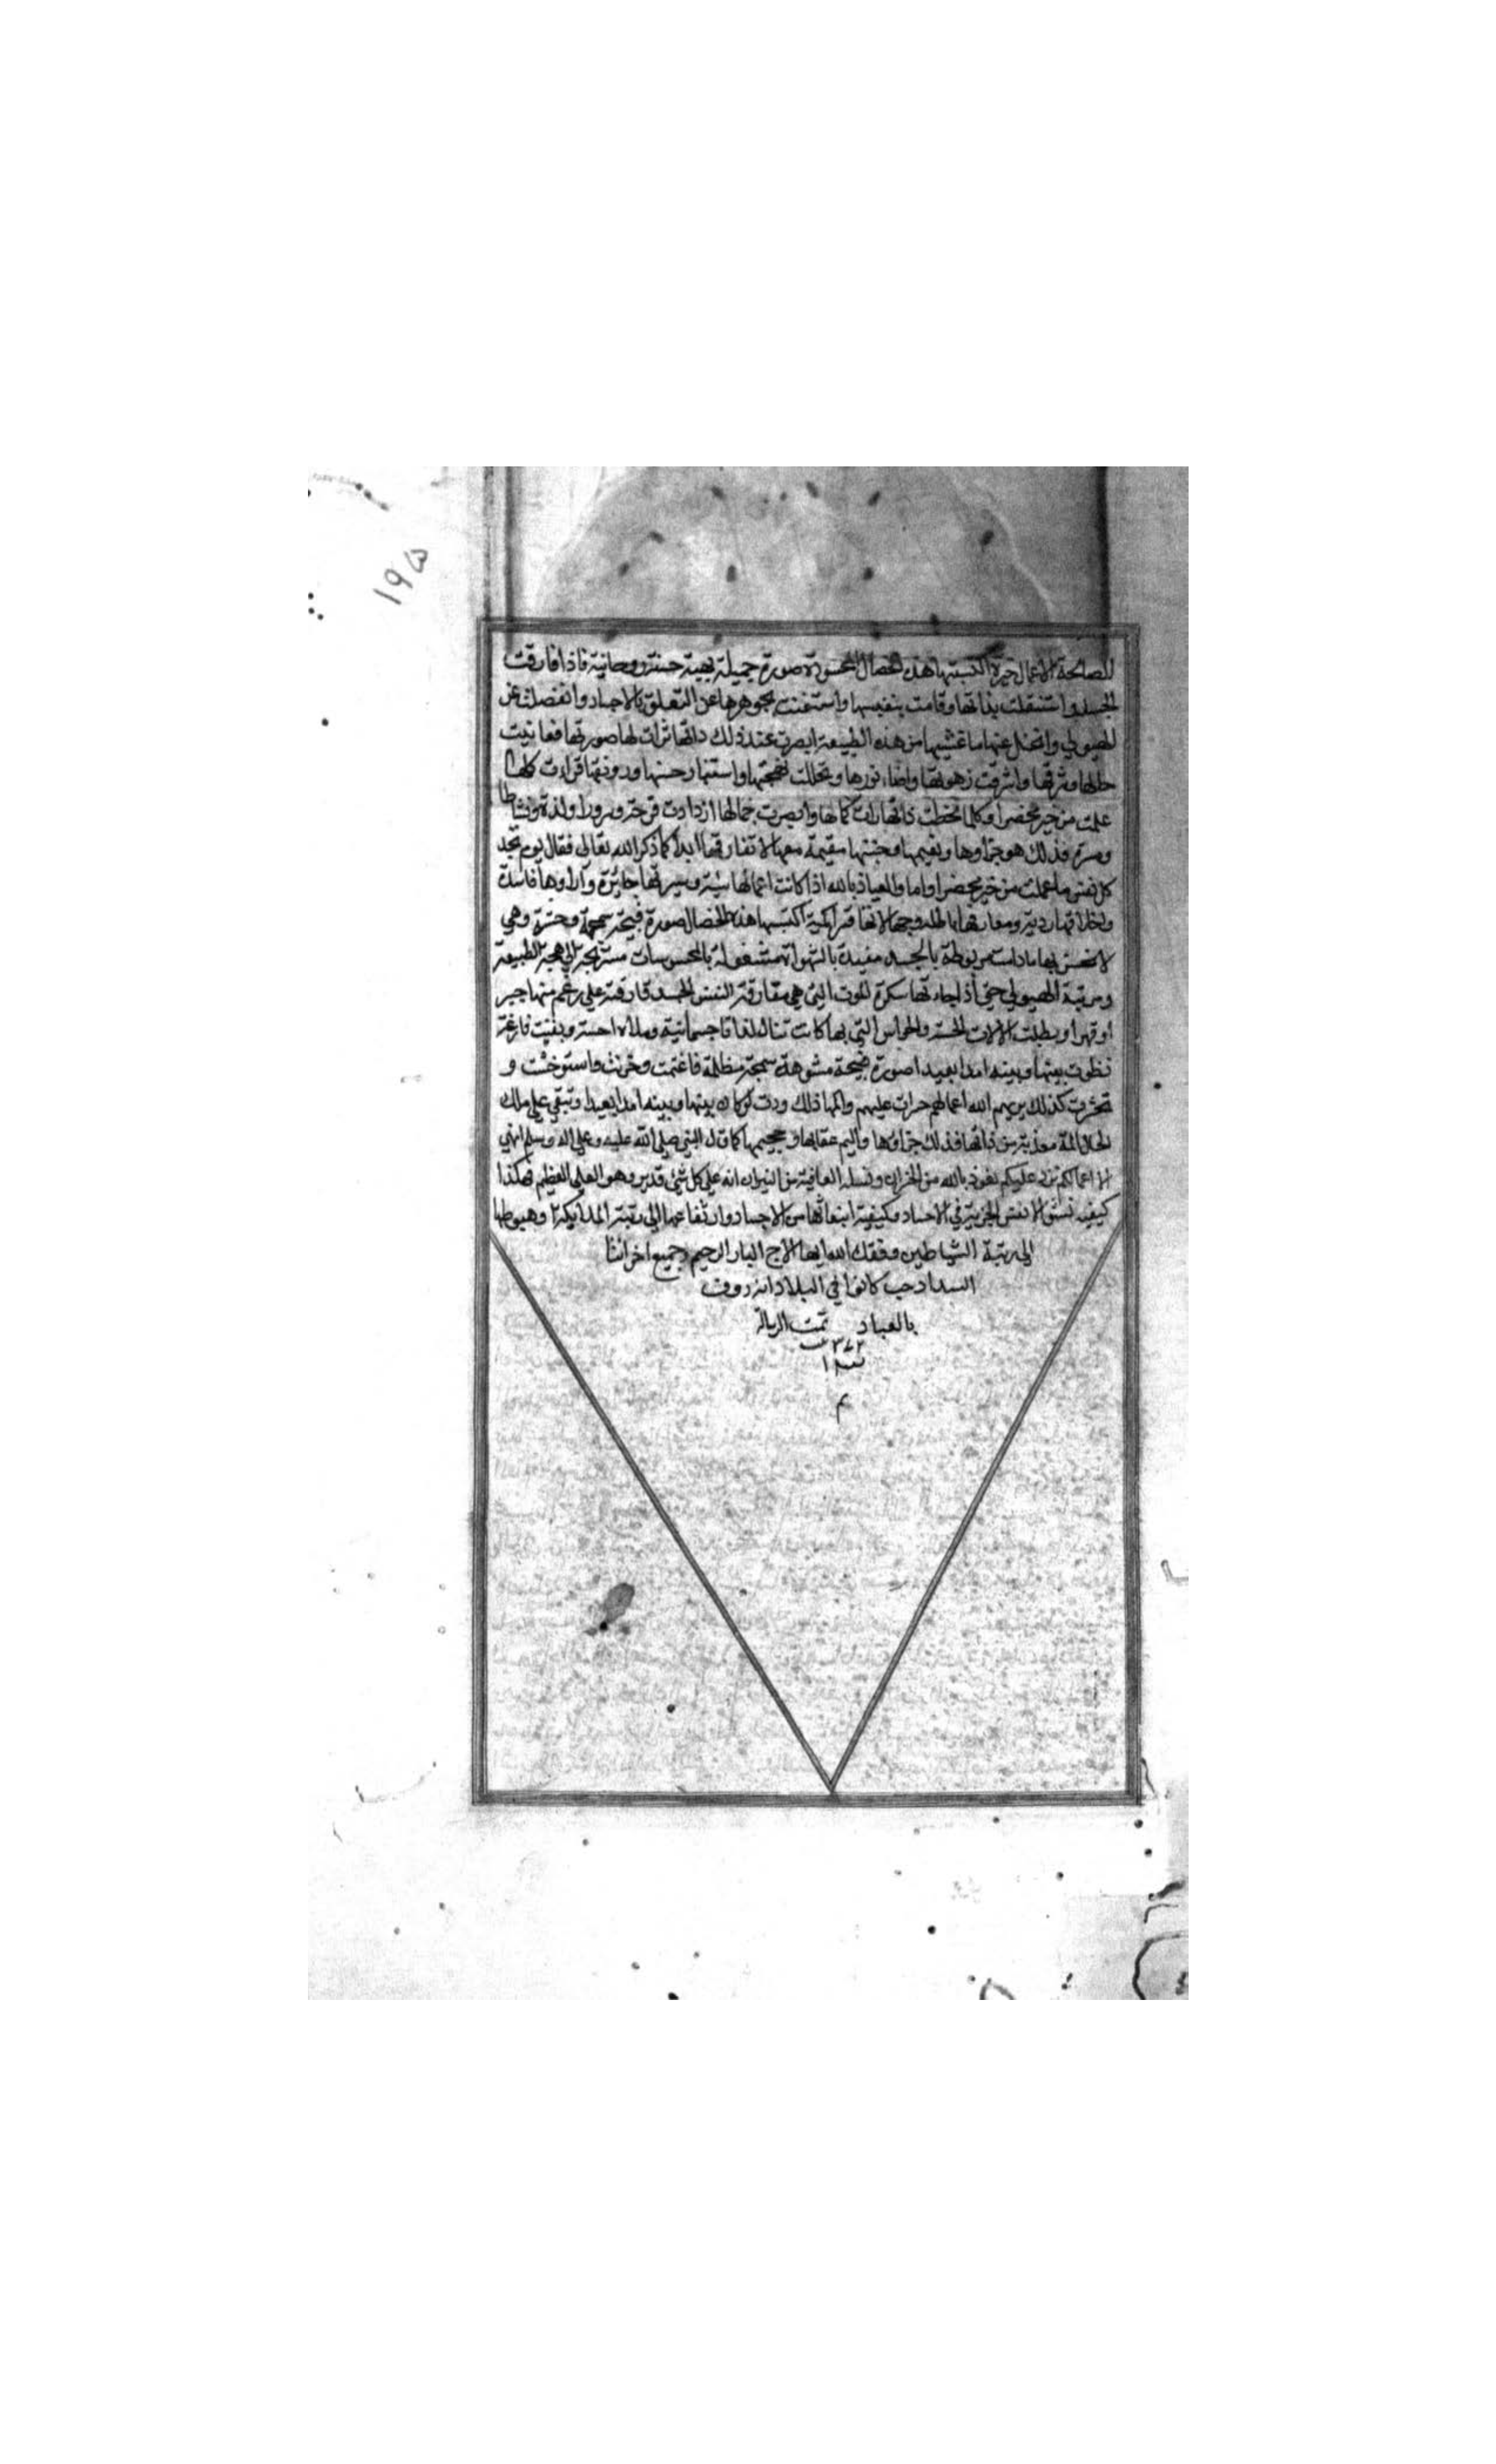 ١٩٥
الصالحة الاعمال خيرة اكتسبتها هذه الخصال المحسودة صورة جميلة بهية حسنة روحانية فاذا فارقت
الجسد واستنقلت بذاتها وقامت بنفسها واستغنت بجوهرها عن التعلق بالاجساد وانفصلت عن
الهيولي وانجل عنها ما غشيها من هذه الطبيعة ابصرت عند ذلك ذاتها ترات لها صورتها فعاينت
جمالها واشرقت زهوتها واضاء نورها وتحللت بهجتها واستنار حسنها ورونقها قرات كلما
علمت من خير محضرا وكلما لحظت ذاتها رات كمالها وابصرت جمالها ازدادت فرحة وسرورا ولذة ونشاطا
ومسرة فذلك هو جزاوها ونعيمها وجنتها مقيمة معها لا تفارقها ابدا كما ذكر الله تعالى فقال يوم تجد
كل نفس ما عملت من خير محضرا واما والعياذ بالله اذا كانت اعمالها سيئة وسيرتها جائزة وآراوها فاسدة
واخلاقها ردية ومعارفها باطلة وجهالاتها متراكمة اكتسبها هذه الخصال صورة قبيحة سمجة وهي
لا تحس بها ما دامت مربوطة بالجسد مقيدة بالشهوات مشغولة بالمحسوسات الطبيعة
ومرتبة الهيولي حتى اذا جاءتها سكرة الموت التي هي مفارقة النفس الجسد فارقته علي رغم منها جبر
او قهرا وبطلت الالات الخمسة والحواس التي بها كانت تنال لذاتا جسمانية وبقيت فارغة
نظرت بينها وبينه امدا بعيدا صورة قبيحة مشوهة سمجة مظلمة فاغتمت وحزنت واستوحشت و
تحسرت كذلك يريهم الله اعمالهم حسرات عليهم والمها ذلك ودت لو كان بينها وبينه امدا بعيدا وتبقى علي تلك
الحال المة معذبة من ذاتها فذلك جزاؤها واليم عقابها وجحيمها كما قال النبي صلى الله عليه وعلى اله وسلم انهي
الا اعمالكم ترد عليكم نعوذ بالله من الخزان ونسله العافية من النيران انه علي كل شئ قدير وهو العلي العظيم فهكذا
كيفية نشو الانفس الجزيئة في الاجساد وكيفية انبعاثها من الاجساد وارتفاعها الى رتبة الملائكة وهبوطها
الى رتبة الشياطين وفقك الله ايها الاخ البار الرحيم وجميع اخواننا
السداد حيث كانوا في البلاد انه رووف
بالعباد تمت الرسالة
م